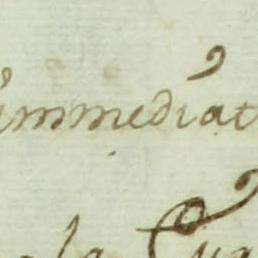 immediat
la Cua